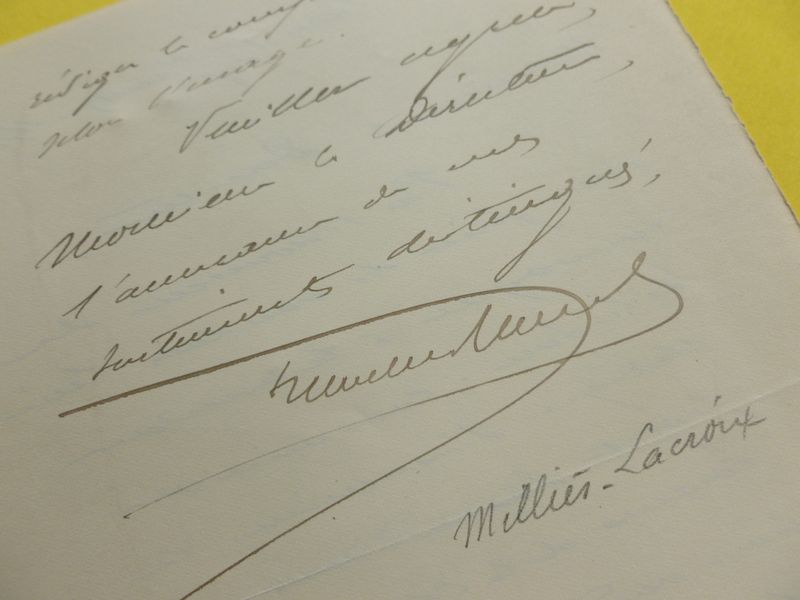 rédiger le
selon l'usage.
Veuillez agréer,
Monsieur le Directeur,
l'assurance de mes
sentiments distingués,
Milliès-Lacroix